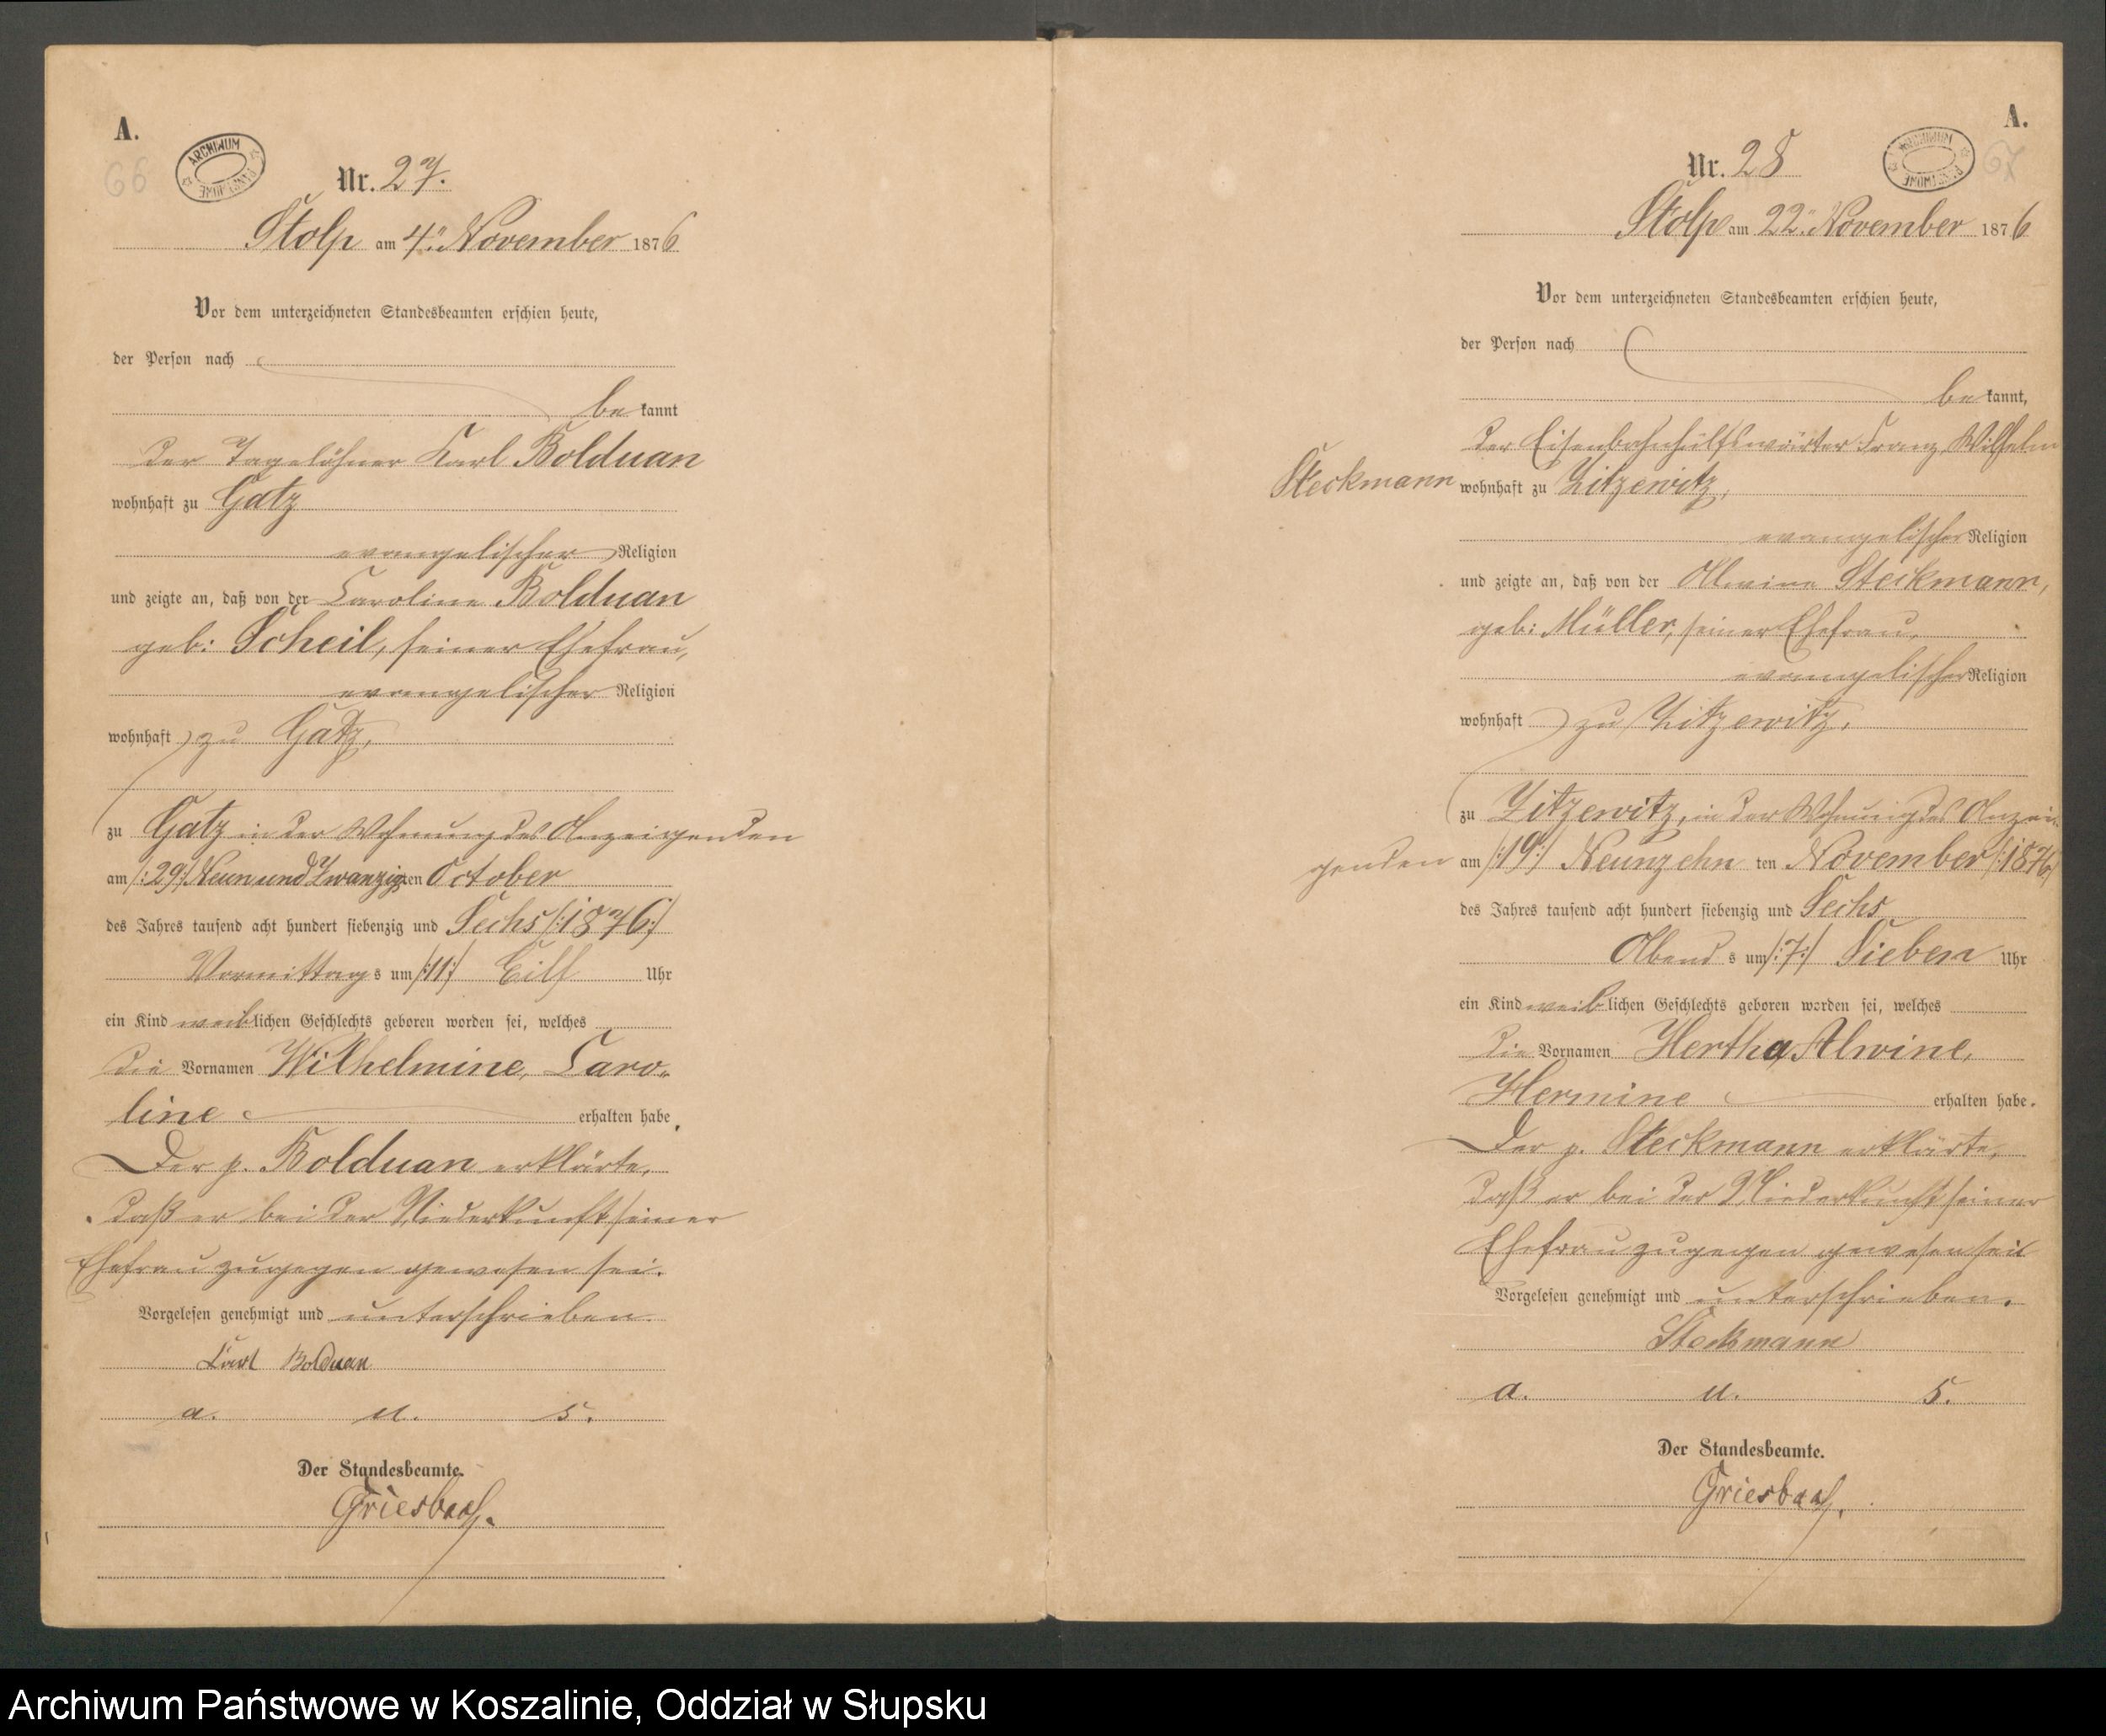 A.
66
ARCHIWUM PAŃSTWOWE
Nr. 27.
Stolp am 4ten November 1876
Vor dem unterzeichneten Standesbeamten erschien heute,
der Person nach
bekannt
der Tagelöhner Karl Bolduan
wohnhaft zu Gatz
evangelischer Religion
und zeigte an, daß von der Caroline Bolduan
geb: Scheil, seiner Ehefrau,
evangelischer Religion
wohnhaft zu Gatz,
zu Gatz in der Wohnung des Anzeigenden
am /:29:/ Neun und Zwanzigten October
des Jahres tausend acht hundert siebenzig und Sechs /:1876:/
Vormittags um /:11:/ Eilf Uhr
ein Kind weiblichen Geschlechts geboren worden sei, welches
die Vornamen Wilhelmine, Caro-
line erhalten habe.
Der p. Bolduan erklärte,
daß er bei der Niederkunft seiner
Ehefrau zugegen gewesen sei.
Vorgelesen genehmigt und unterschrieben.
Karl Bolduan
a. u. s.
Der Standesbeamte.
Griesbach.
A.
67
ARCHIWUM PAŃSTWOWE
Nr. 28
Stolp am 22ten November 1876
Vor dem unterzeichneten Standesbeamten erschien heute,
der Person nach
bekannt,
der Eisenbahnhülfswärter Franz Wilhelm
Steckmann wohnhaft zu Zitzewitz,
evangelischer Religion
und zeigte an, daß von der Alwine Steckmann,
geb: Müller, seiner Ehefrau,
evangelischer Religion
wohnhaft zu Zitzewitz,
zu Zitzewitz, in der Wohnung des Anzei-
genden am /:19:/ Neunzehn ten November /:1876:/
des Jahres tausend acht hundert siebenzig und Sechs
Abends um /:7:/ Sieben Uhr
ein Kind weiblichen Geschlechts geboren worden sei, welches
die Vornamen Hertha, Alwine,
Hermine erhalten habe.
Der p. Steckmann erklärte,
daß er bei der Niederkunft seiner
Ehefrau zugegen gewesen sei
Vorgelesen genehmigt und unterschrieben.
Steckmann
a. u. s.
Der Standesbeamte.
Griesbach.
Archiwum Państwowe w Koszalinie, Oddział w Słupsku